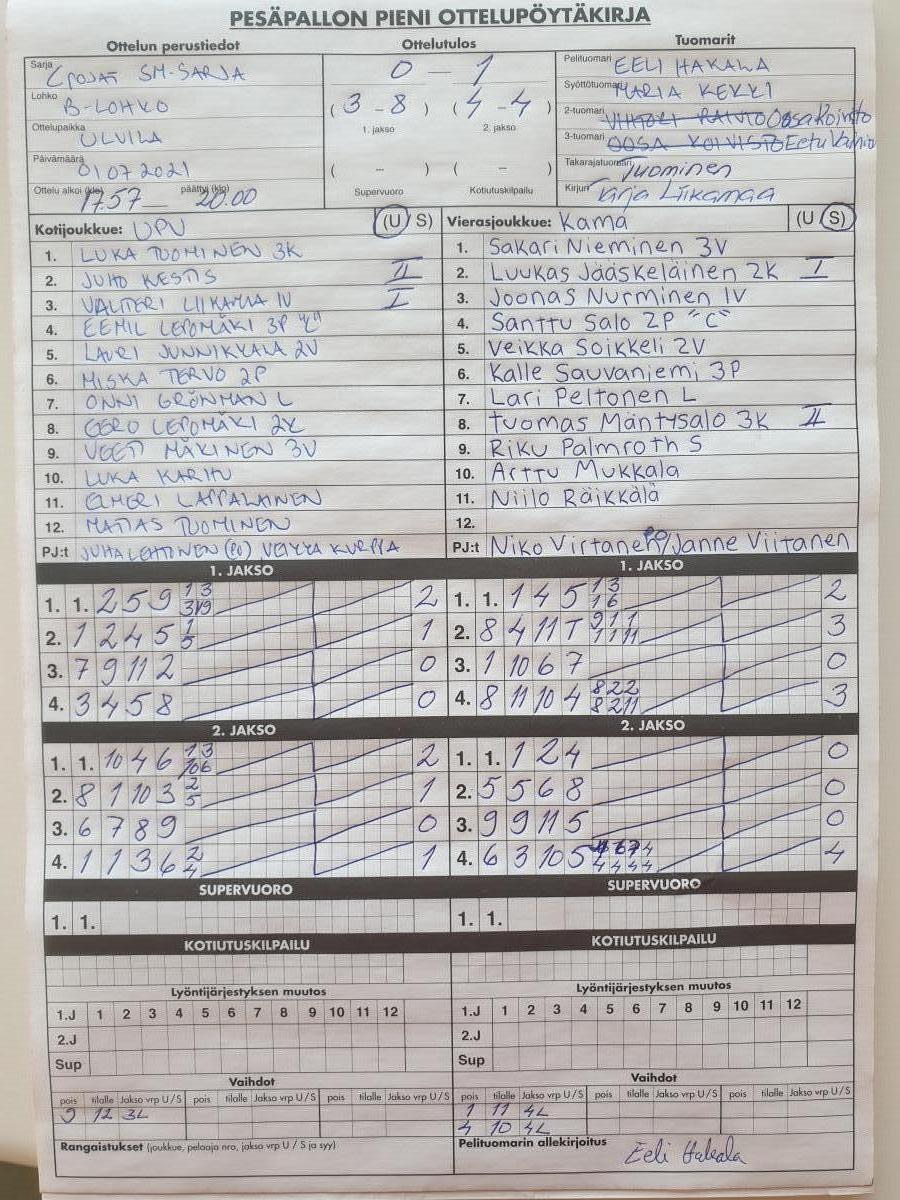 PESÄPALLON PIENI OTTELUPÖYTÄKIRJA
Ottelun perustiedot Ottelutulos Tuomarit
Sarja C POJAT SM-SARJA
Lohko B-LOHKO
Ottelupaikka ULVILA
Päivämäärä 01.07.2021
Ottelu alkoi (klo) 17.57 päättyi (klo) 20.00
0 - 1
(3 - 8) (4 - 4)
1. jakso 2. jakso
( - ) ( - )
Supervuoro Kotiutuskilpailu
Pelituomari EELI HAKALA
Syöttötuomari MARIA KEKKI
2-tuomari Oosa Koivisto
3-tuomari OOSA KOIVISTO Eetu
Takarajatuomari Tuominen
Kirjuri Tarja Liikamaa
Kotijoukkue: UPV (U S)
1. LUKA TUOMINEN 3K
2. JUHO KESTIS II
3. VALTTERI LIIKAMAA 1V I
4. EEMIL LEPOMÄKI 3P "C"
5. LAURI JUNNIKKALA 2V
6. MISKA TERVO 2P
7. ONNI GRÖNMAN L
8. EERO LEPOMÄKI 2K
9. VEETI MÄKINEN 3V
10. LUKA KARHU
11. ELMERI LAPPALAINEN
12. MATIAS TUOMINEN
PJ:t JUHA LEHTONEN (PV) VEIKKA KURPPA
Vierasjoukkue: Kama (U S)
1. Sakari Nieminen 3V
2. Luukas Jääskeläinen 2K I
3. Joonas Nurminen 1V
4. Santtu Salo 2P "C"
5. Veikka Soikkeli 2V
6. Kalle Sauvaniemi 3P
7. Lari Peltonen L
8. Tuomas Mäntysalo 3K II
9. Riku Palmroth S
10. Arttu Mukkala
11. Niilo Räikkälä
12.
PJ:t Niko Virtanen / Janne Viitanen
1. JAKSO 1. JAKSO
1. 1. 2 5 9 1 3 2
3 19
2. 1 2 4 5 1 1
5
3. 7 9 11 2 0
4. 3 4 5 8 0
1. 1. 1 4 5 1 3 2
1 6
2. 8 4 11 T 9 1 1 3
1 1 11
3. 1 10 6 7 0
4. 8 11 10 4 8 2 2 3
8 2 11
2. JAKSO 2. JAKSO
1. 1. 10 4 6 1 3 2
10 6
2. 8 1 10 3 2 1
5
3. 6 7 8 9 0
4. 1 1 3 6 2 1
4
1. 1. 1 2 4 0
2. 5 5 6 8 0
3. 9 9 11 5 0
4. 6 3 10 5 4 6 7 4 4
4 4 4 4
SUPERVUORO SUPERVUORO
1. 1. 1. 1.
KOTIUTUSKILPAILU KOTIUTUSKILPAILU
Lyöntijärjestyksen muutos Lyöntijärjestyksen muutos
1.J 1 2 3 4 5 6 7 8 9 10 11 12 1.J 1 2 3 4 5 6 7 8 9 10 11 12
2.J 2.J
Sup Sup
Vaihdot Vaihdot
pois tilalle Jakso vrp U / S pois tilalle Jakso vrp U / S pois tilalle Jakso vrp U / S pois tilalle Jakso vrp U / S
9 12 3L 1 11 4L
4 10 4L
Rangaistukset (joukkue, pelaaja nro, jakso vrp U / S ja syy) Pelituomarin allekirjoitus
Eeli Hakala